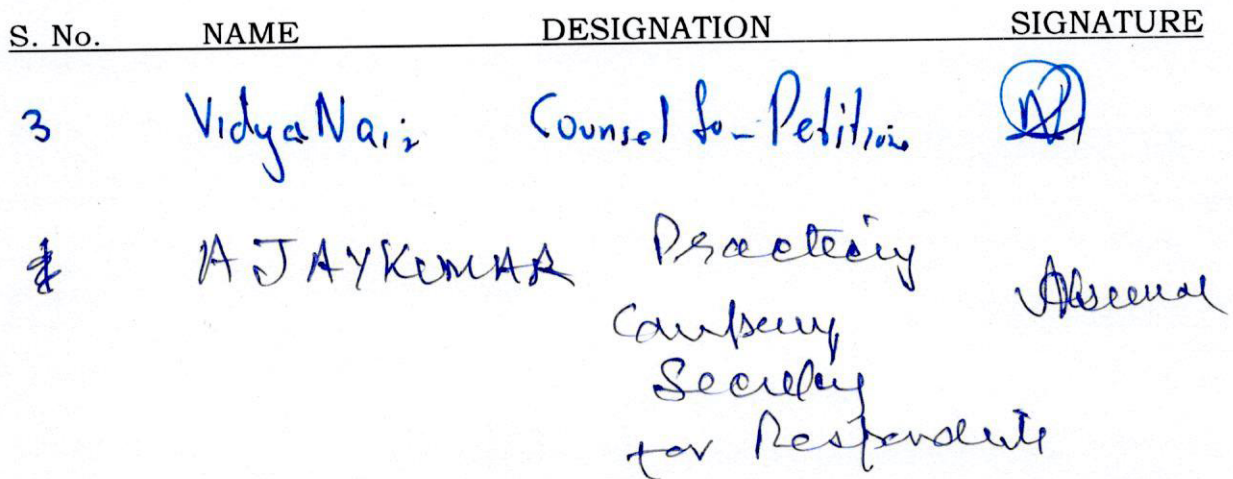 S. No. NAME DESIGNATION SIGNATURE
3 Vidya Nair Counsel for Petition
AJAY KUMAR Practicing
Company
Secretary
for Respondents